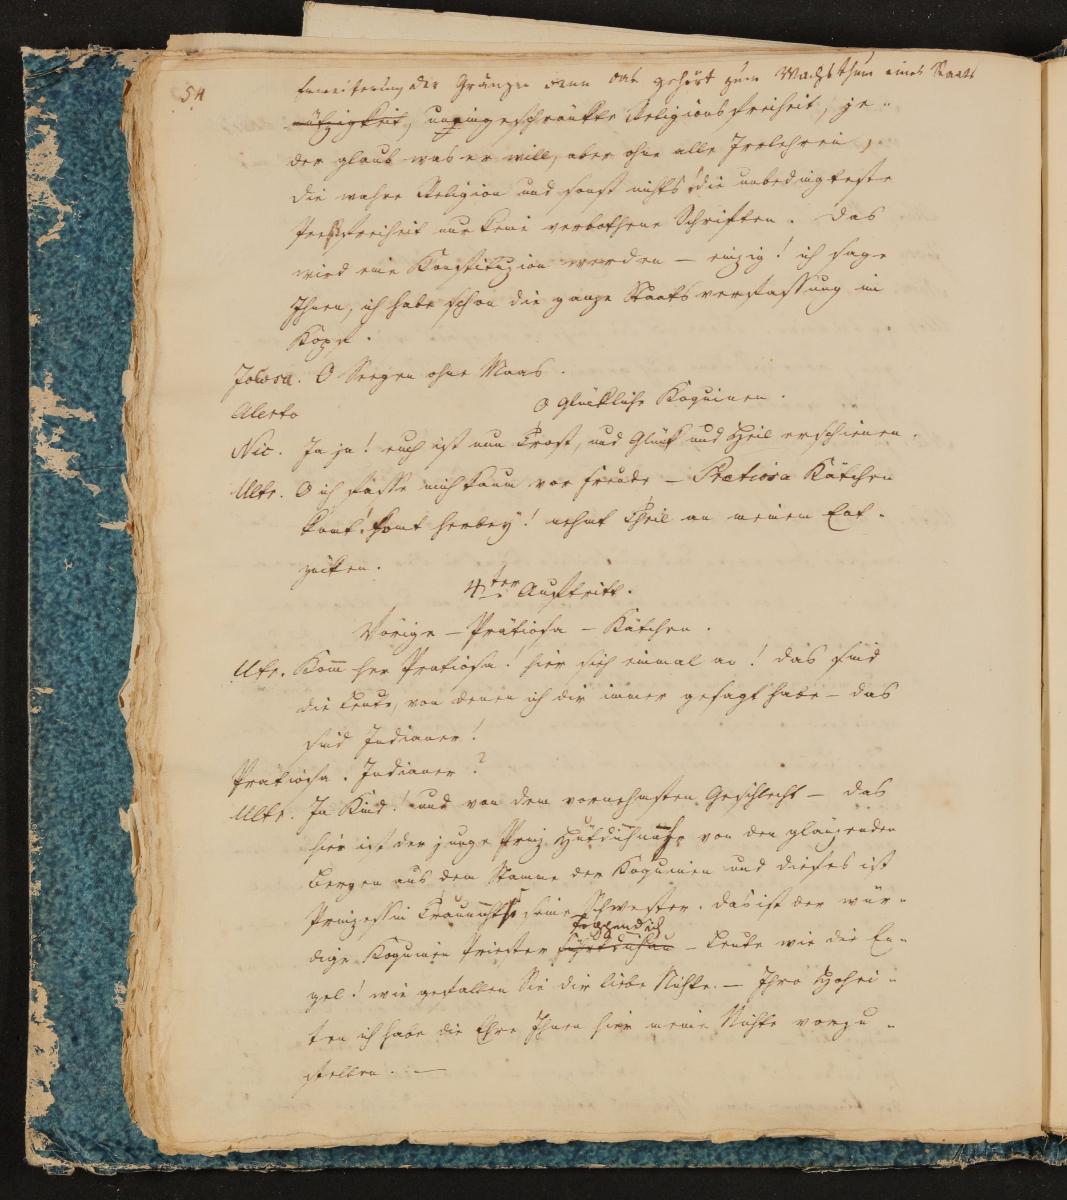 54
Erweiterung der Gränzen denn das gehört zum Wachsthum eines Staats
uneingeschränkte Religionsfreiheit, je-
der glaub was er will, aber ohne alle Irrlehren,
die wahre Religion und sonst nichts! die unbedingteste
Preßfreiheit nur keine verbothene Schriften. Das
wird eine Konstituzion werden – einzig! ich sage
Ihnen, ich habe schon die ganze Staatsverfassung im
Kopf.
Jocosa. O Seegen ohne Maas.
Alerto O glückliche Koquinen.
Nic. Ja ja! euch ist nun Trost, und Glück und Heil erschienen.
Ulke. O ich fasse mich kaum vor Freude – Pretiosa Kätchen
komt! komt herbey! nehmt Theil an meinem Ent-
zücken.
4ter Auftritt.
Vorige – Prätiosa – Kätchen.
Ulke. Kom̄ her Pratiosa! hier sieh einmal an! das sind
die Leute, von denen ich dir immer gesagt habe – das
sind Indianer!
Prätiosa. Indianer?
Ulke. Ja Kind! und von dem vornehmsten Geschlecht – das
hier ist der junge Prinz von den glänzenden
Bergen aus dem Stamme der Koquinen und dieses ist
Prinzessin seine Schwester. das ist der wür-
dige Koquinen Priester – Leute wie die En-
gel! wie gefallen Sie dir liebe Nichte. – Ihro Hohei-
ten ich habe die Ehre Ihnen hier meine Nichte vorzu-
stellen. –